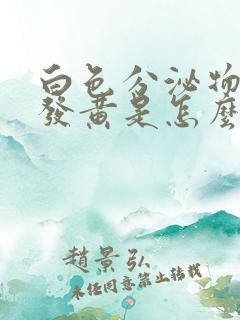 白色分泌物
發黃是怎麼
趙景弘
未经同意禁止转载